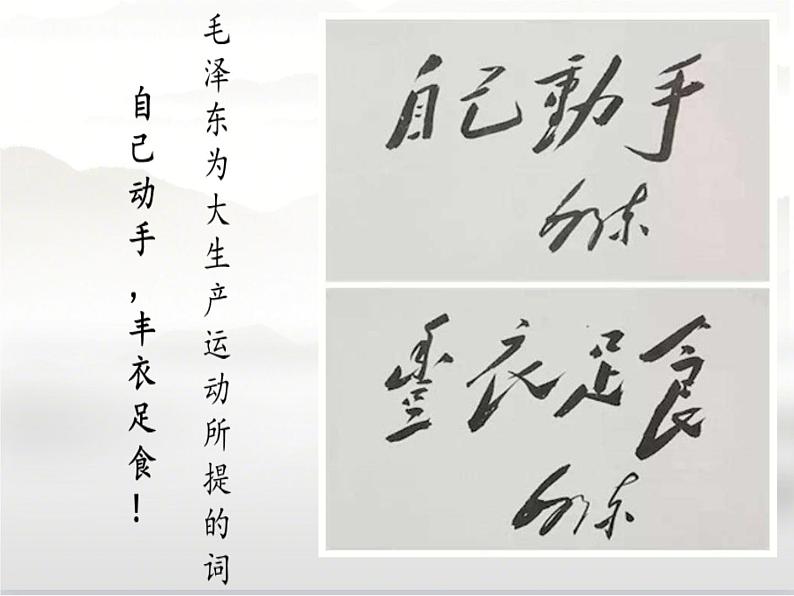 毛泽东为大生产运动所提的词
自己动手，丰衣足食！
自己動手
泽东
豐衣足食
泽东